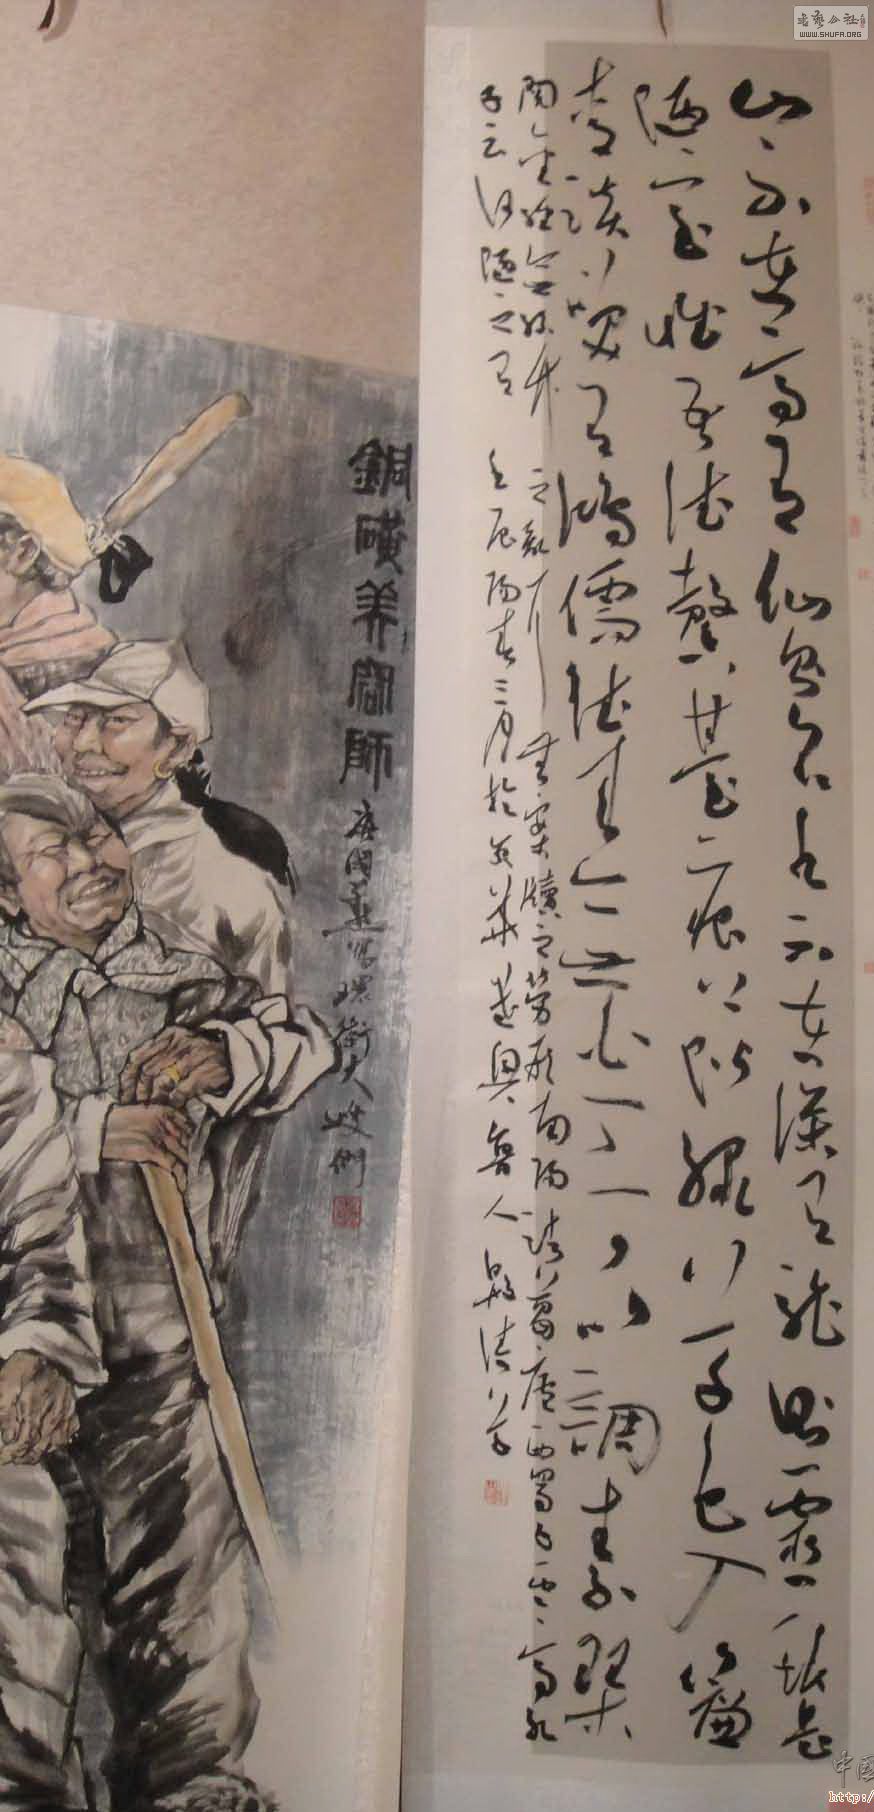 書藝公社
WWW.SHUFA.ORG
山不在高有仙則名水不在深有龍則靈斯是
陋室惟吾德馨苔痕上階綠草色入簾
青談笑有鴻儒往來無白丁可以調素琴
閱金經無絲竹之亂耳無案牘之勞形南陽諸葛廬西蜀子雲亭孔
子云何陋之有 壬辰陽春三月於京華 魯人
銅 師
街大嫂們
中国
http:/